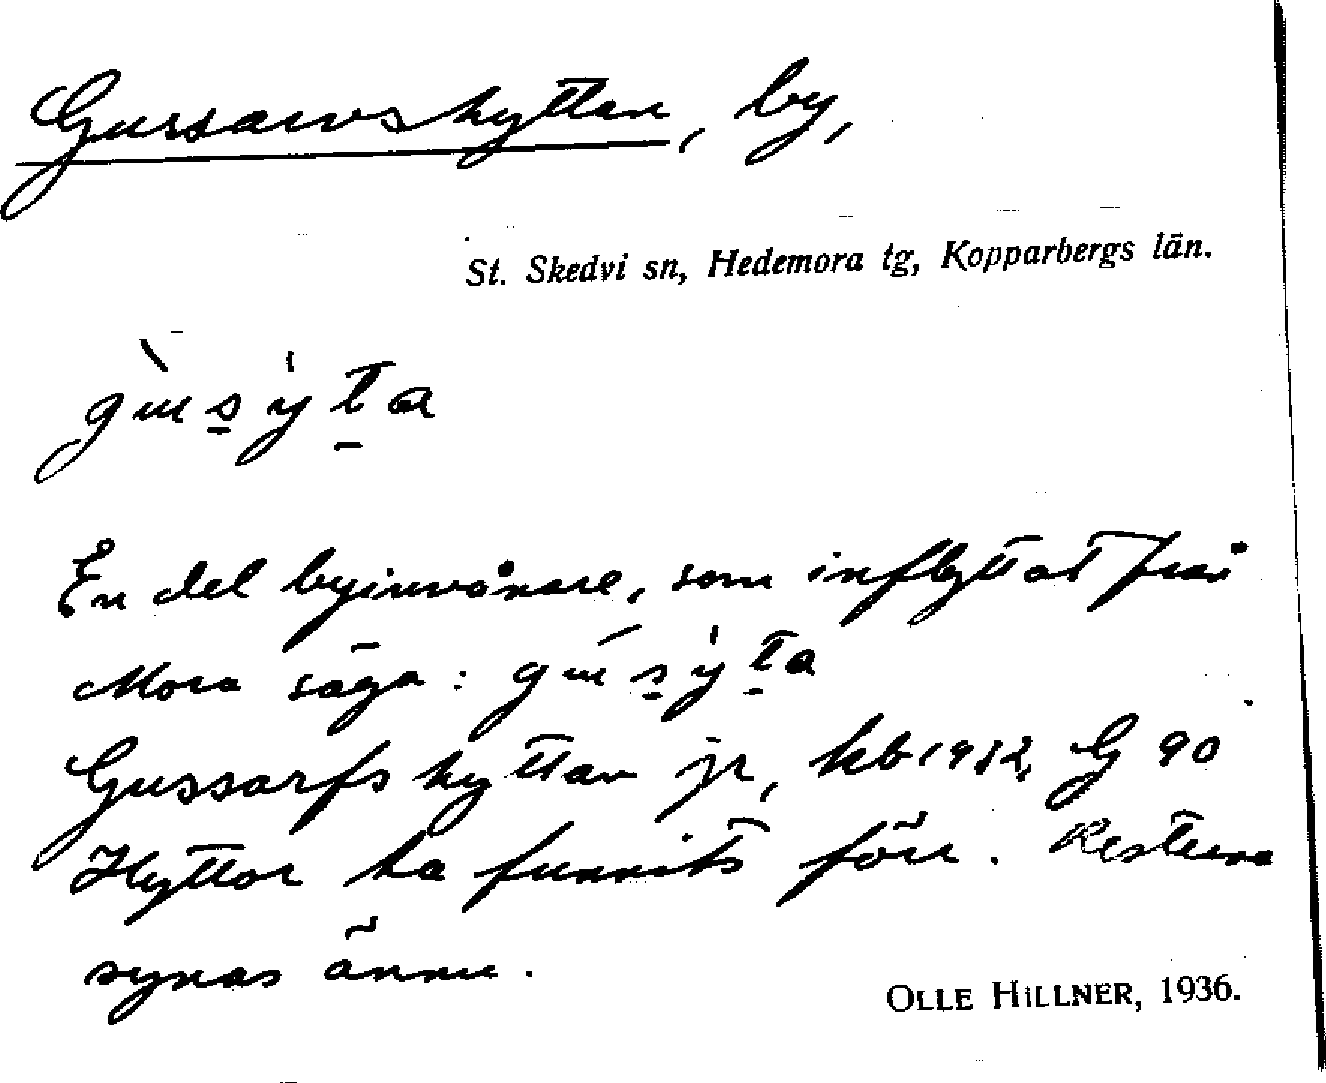 Gussarvshyttan, by,
St. Skedvi sn, Hedemora tg, Kopparbergs län.
gùsýta
En del byinvånare, som inflyttat från
Mora säga: gúsýta
Gussarfshyttan jr, kb 1932, G 90
Hyttor ha funnits förr. Resterna
synas ännu.
OLLE HILLNER, 1936.